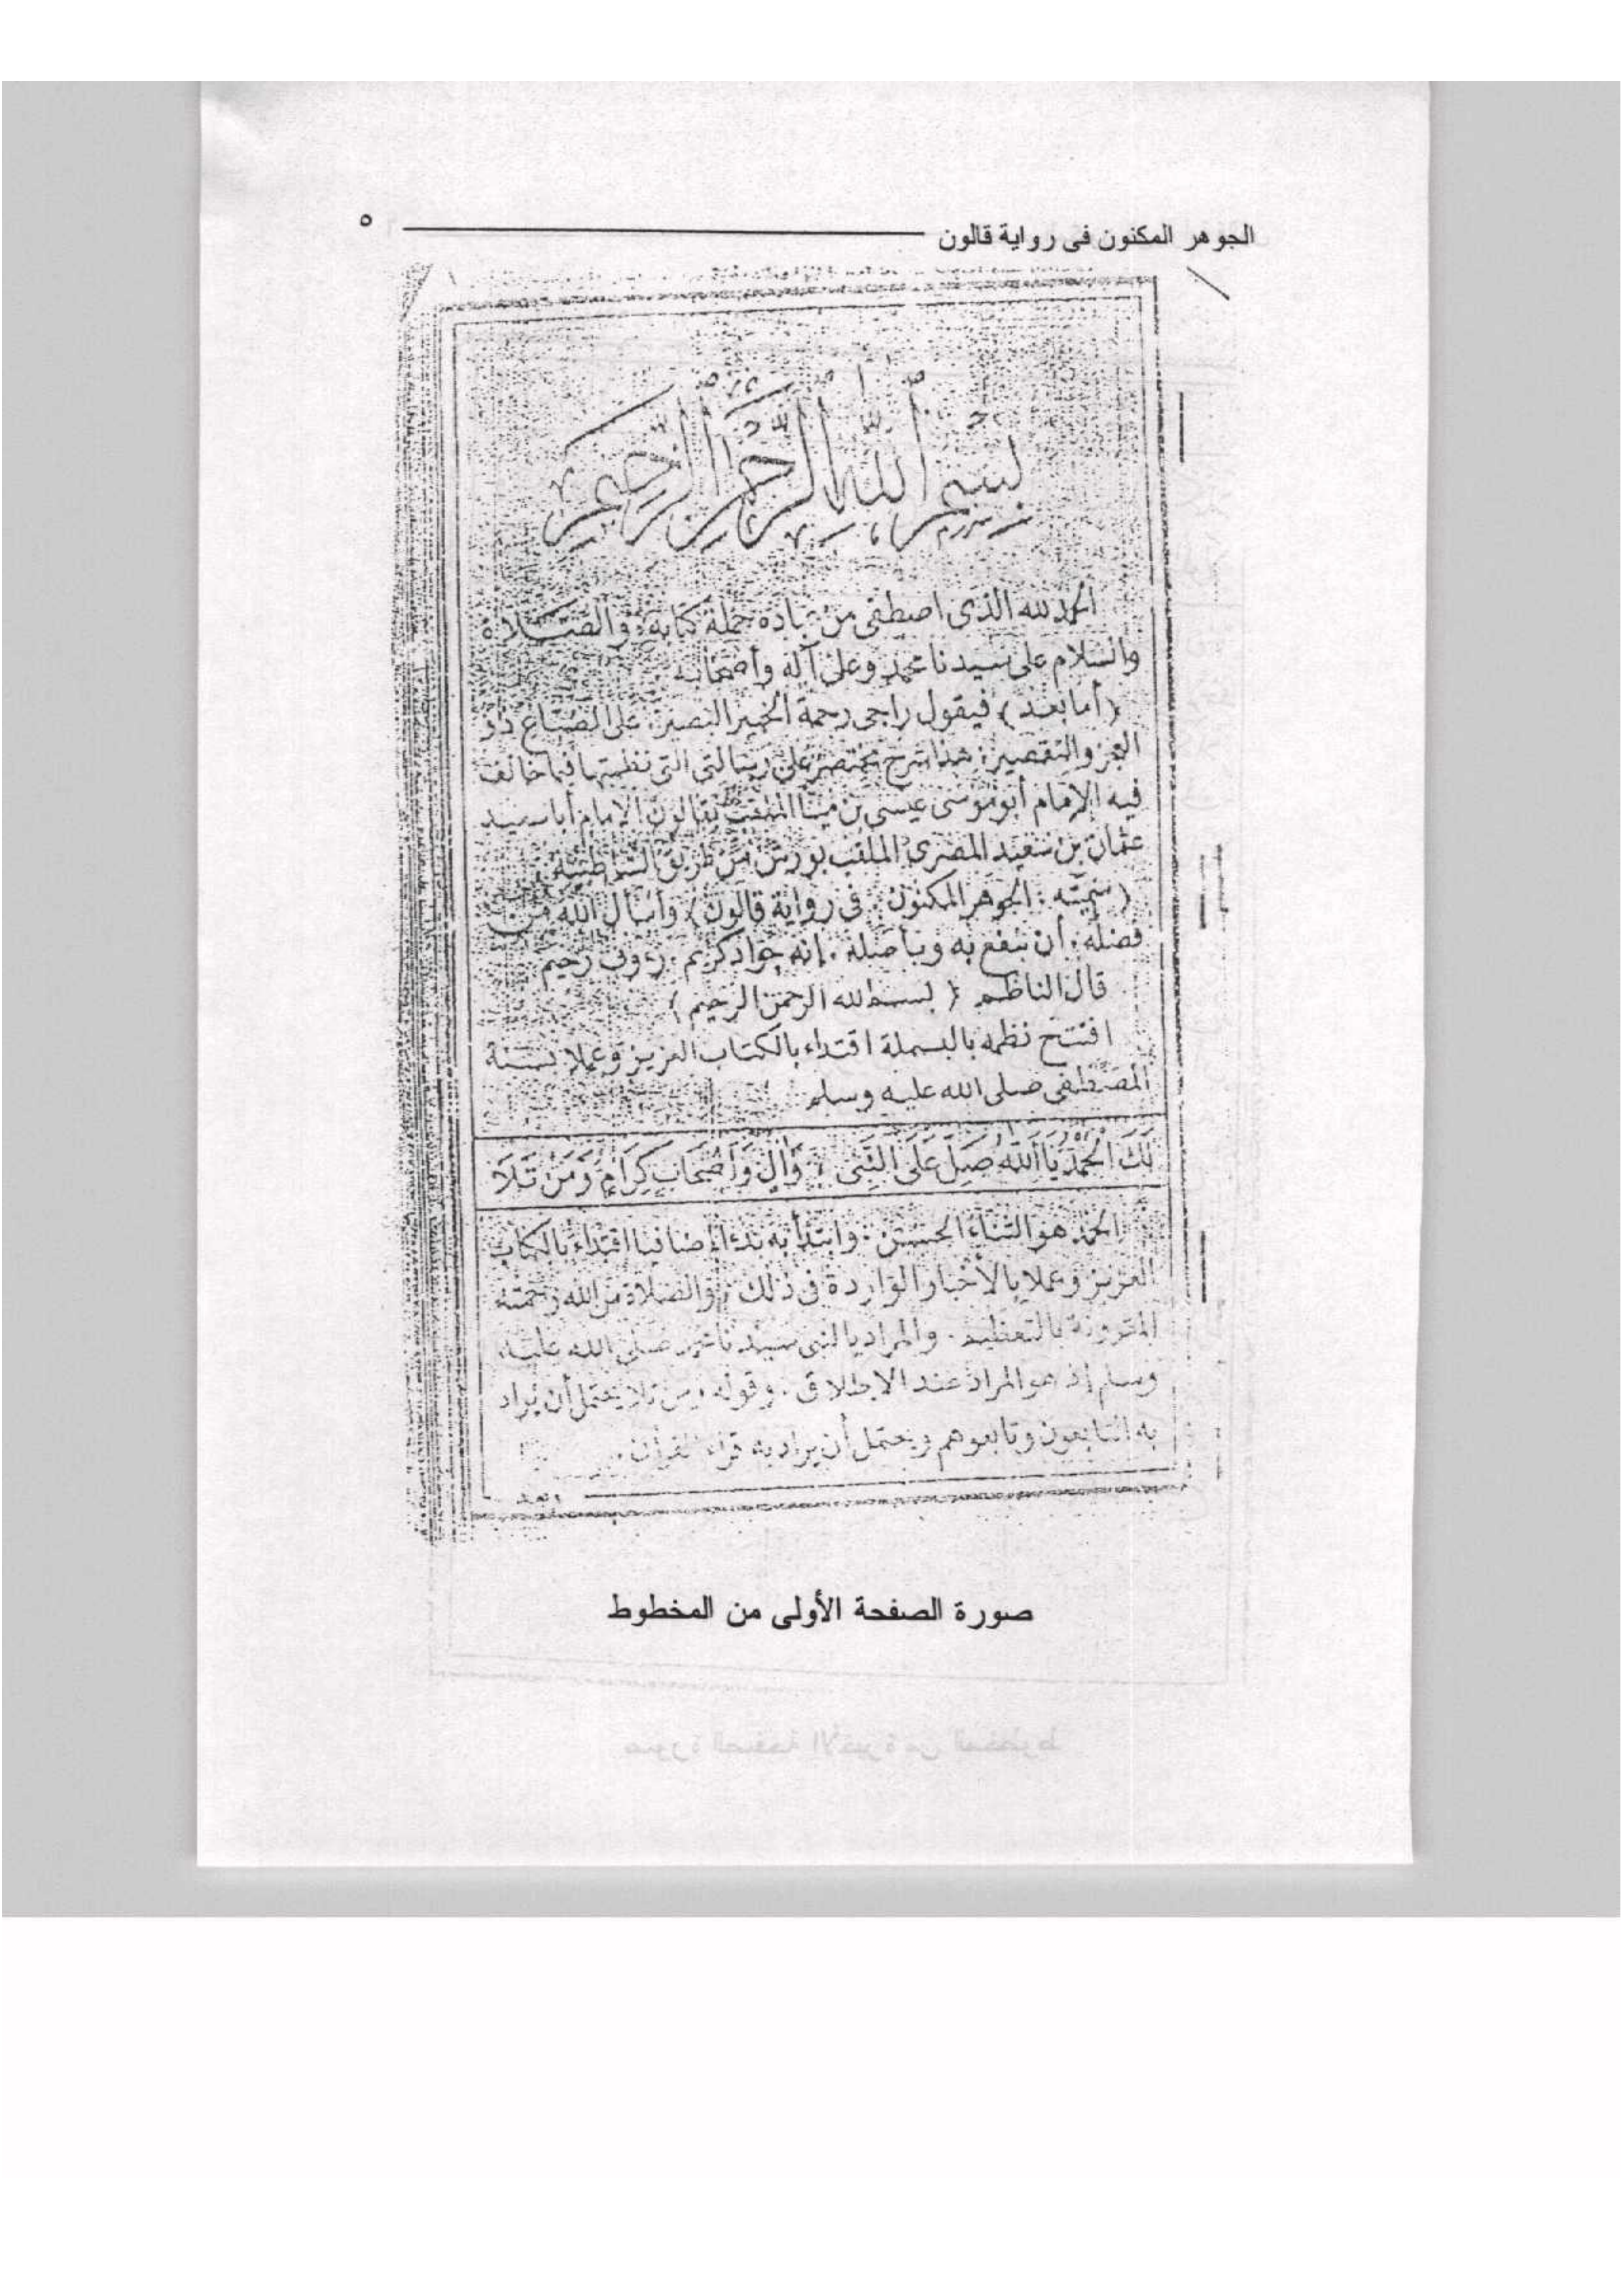 الجوهر المكنون فى رواية قالون ٥
بسم الله الرحمن الرحيم
الحمد لله الذى اصطفى من عباده حملة كتابه، والصلاة
والسلام على سيدنا محمد وعلى آله وأصحابه
(أما بعد) فيقول راجى رحمة الخبير البصير. على الضباع ذو
العجز والتقصير: هذا شرح مختصر على رسالتى التى نظمتها فيما خالف
فيه الإمام أبو موسى عيسى بن مينا الملقب بقالون الإمام أبا سعيد
عثمان بن سعيد المصرى الملقب بورش من طريق الشاطبية.
(سميته: الجوهر المكنون. فى رواية قالون) وأسأل الله من
فضله. أن ينفع به وبأصله. إنه جواد كريم. رءوف رحيم
قال الناظم (بسم الله الرحمن الرحيم)
افتتح نظمه بالبسملة اقتداء بالكتاب العزيز وعملا بسنة
المصطفى صلى الله عليه وسلم
لَكَ الْحَمْدُ يَا اَللَّهُ صَلِّ عَلَى النَّبِى . وَآلٍ وَأَصْحَابٍ كِرَامٍ وَمَنْ تَلَا
الحمد هو الثناء الحسن. وابتدأ به بدءا إضافيا اقتداء بالكتاب
العزيز وعملا بالأخبار الواردة فى ذلك. والصلاة من الله رحمته
المقرونة بالتعظيم. والمراد بالنبى سيدنا محمد صلى الله عليه
وسلم إذ هو المراد عند الإطلاق. وقوله ومن تلا يحتمل أن يراد
به التابعون وتابعوهم ويحتمل أن يراد به قراء القرآن.
صورة الصفحة الأولى من المخطوط